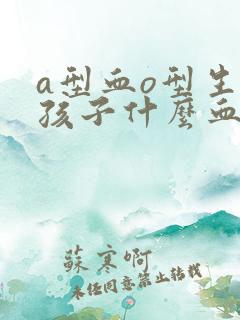 a型血o型生
孩子什麽血
蘇寒啊
未經同意禁止轉載